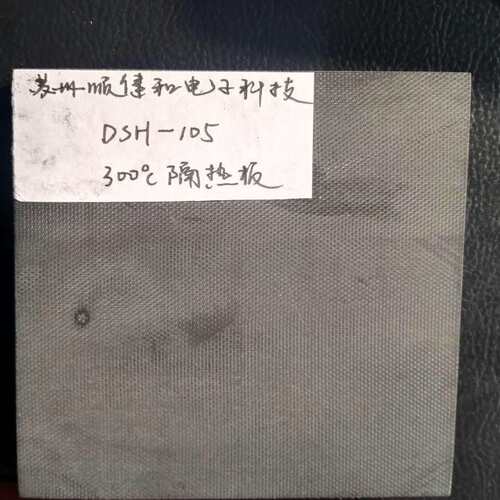 苏州顺健和电子科技
DSH-105
300℃隔热板